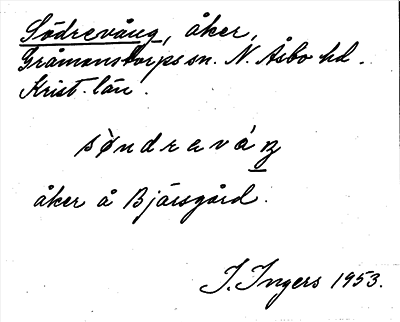 Södrevång, åker,
Gråmanstorps sn. N. Åsbo hd.
Krist. län.
sȍndravá
åker å Bjärsgård.
I. Ingers 1953.